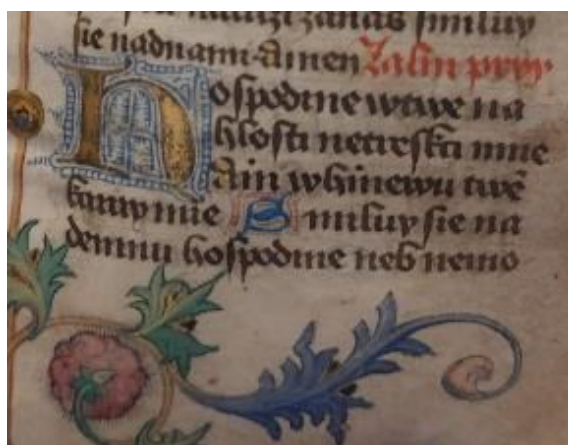 zanas smiluy
sie nadnami Amen Zalm prvy
Hospodine wtwe na
hlosti netreskci mne
Ani whinewu twē
karay mie Smiluy sie na
demnu hospodine neb nemo